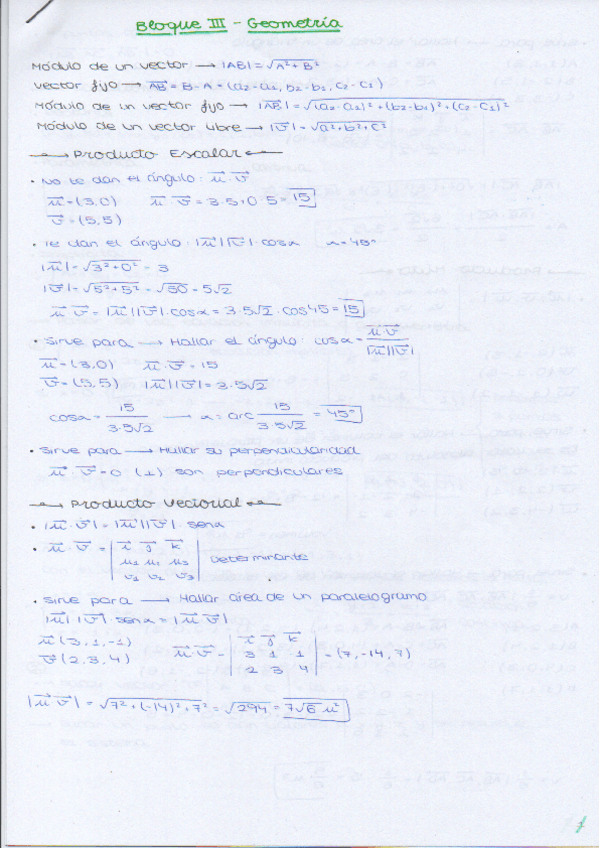 Bloque III - Geometría
Módulo de un vector → |AB| = √A²+B²
Vector fijo → AB = B - A = (a2-a1, b2-b1, c2-c1)
Módulo de un vector fijo → |AB| = √(a2-a1)²+(b2-b1)²+(c2-c1)²
Módulo de un vector libre → |v| = √a²+b²+c²
→ Producto Escalar ←
• No te dan el ángulo: u · v
u = (3,0) u · v = 3·5+0·5 = 15
v = (5,5)
• Te dan el ángulo: |u| |v| · cosα α = 45°
|u| = √3²+0² = 3
|v| = √5²+5² = √50 = 5√2
u · v = |u| |v| · cosα = 3·5√2 · cos45 = 15
• Sirve para → Hallar el ángulo: cosα = u·v / |u||v|
u = (3,0) u · v = 15
v = (5,5) |u| |v| = 3·5√2
cosα = 15 / 3·5√2 → α = arc 15 / 3·5√2 = 45°
• Sirve para → Hallar su perpendicularidad
u · v = 0 (⊥) son perpendiculares
→ Producto Vectorial ←
• |u · v| = |u| |v| · senα
• u · v = | i j k |
u1 u2 u3 Determinante
v1 v2 v3
• Sirve para → Hallar área de un paralelogramo
|u| |v| · senα = |u · v|
u (3,1,-1) i j k
v (2,3,4) u · v = 3 1 1 = (7,-14,7)
2 3 4
|u · v| = √7²+(-14)²+7² = √294 = 7√6 u²
1